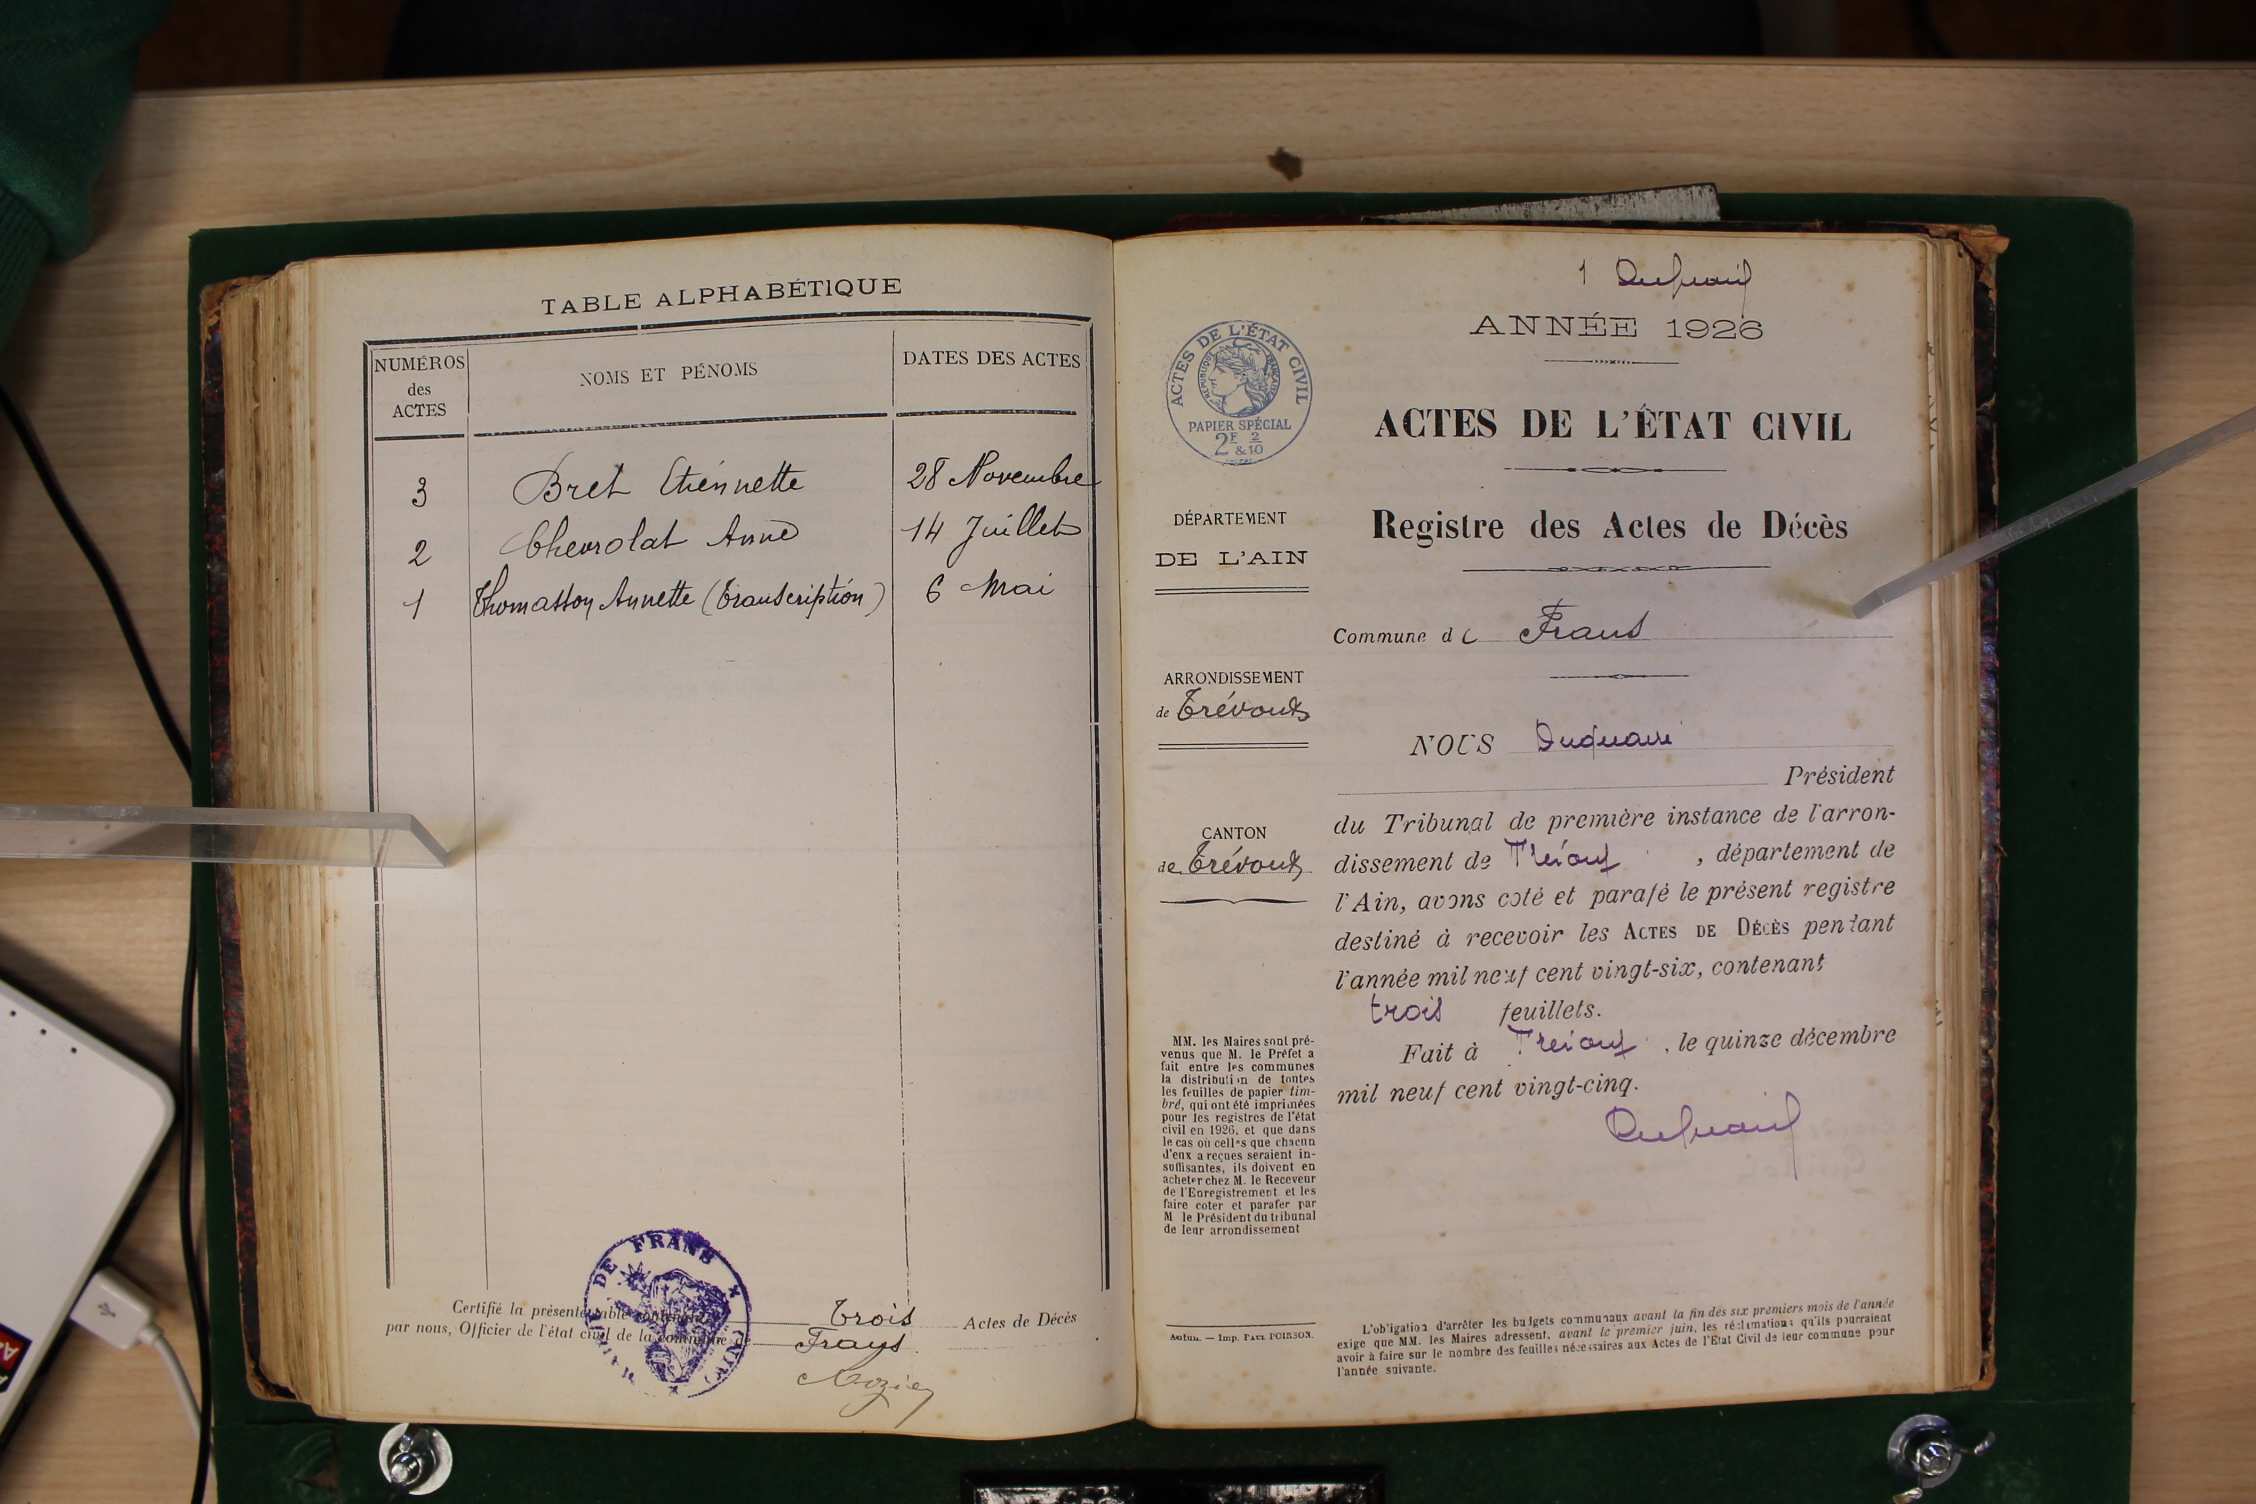 TABLE ALPHABÉTIQUE
NUMÉROS
des
ACTES
NOMS ET PÉNOMS
DATES DES ACTES
3 Bret Etiennette 28 Novembre
2 Chevrolat Anne 14 Juillet
1 Thomasson Annette (Transcription) 6 Mai
Certifié la présente table contenant trois Actes de Décès
par nous, Officier de l'état civil de la commune de Frans
MAIRIE DE FRANS (AIN)
1
ANNÉE 1926
ACTES DE L'ÉTAT CIVIL
RÉPUBLIQUE FRANÇAISE
PAPIER SPÉCIAL
2F 2
& 10
ACTES DE L'ÉTAT CIVIL
Registre des Actes de Décès
DÉPARTEMENT
DE L'AIN
Commune de Frans
ARRONDISSEMENT
de Trévoux
CANTON
de Trévoux
NOUS
Président
du Tribunal de première instance de l'arron-
dissement de Trévoux, département de
l'Ain, avons coté et parafé le présent registre
destiné à recevoir les ACTES DE DÉCÈS pendant
l'année mil neuf cent vingt-six, contenant
trois feuillets.
Fait à Trévoux, le quinze décembre
mil neuf cent vingt-cinq.
MM. les Maires sont pré-
venus que M. le Préfet a
fait entre les communes
la distribution de toutes
les feuilles de papier tim-
bré, qui ont été imprimées
pour les registres de l'état
civil en 1926, et que dans
le cas où celles que chacun
d'eux a reçues seraient in-
suffisantes, ils doivent en
acheter chez M. le Receveur
de l'Enregistrement et les
faire coter et parafer par
M le Président du tribunal
de leur arrondissement
Autun. — Imp. PAUL POINSON.
L'obligation d'arrêter les budgets communaux avant la fin des six premiers mois de l'année
exige que MM. les Maires adressent, avant le premier juin, les réclamations qu'ils pourraient
avoir à faire sur le nombre des feuilles nécessaires aux Actes de l'Etat Civil de leur commune pour
l'année suivante.